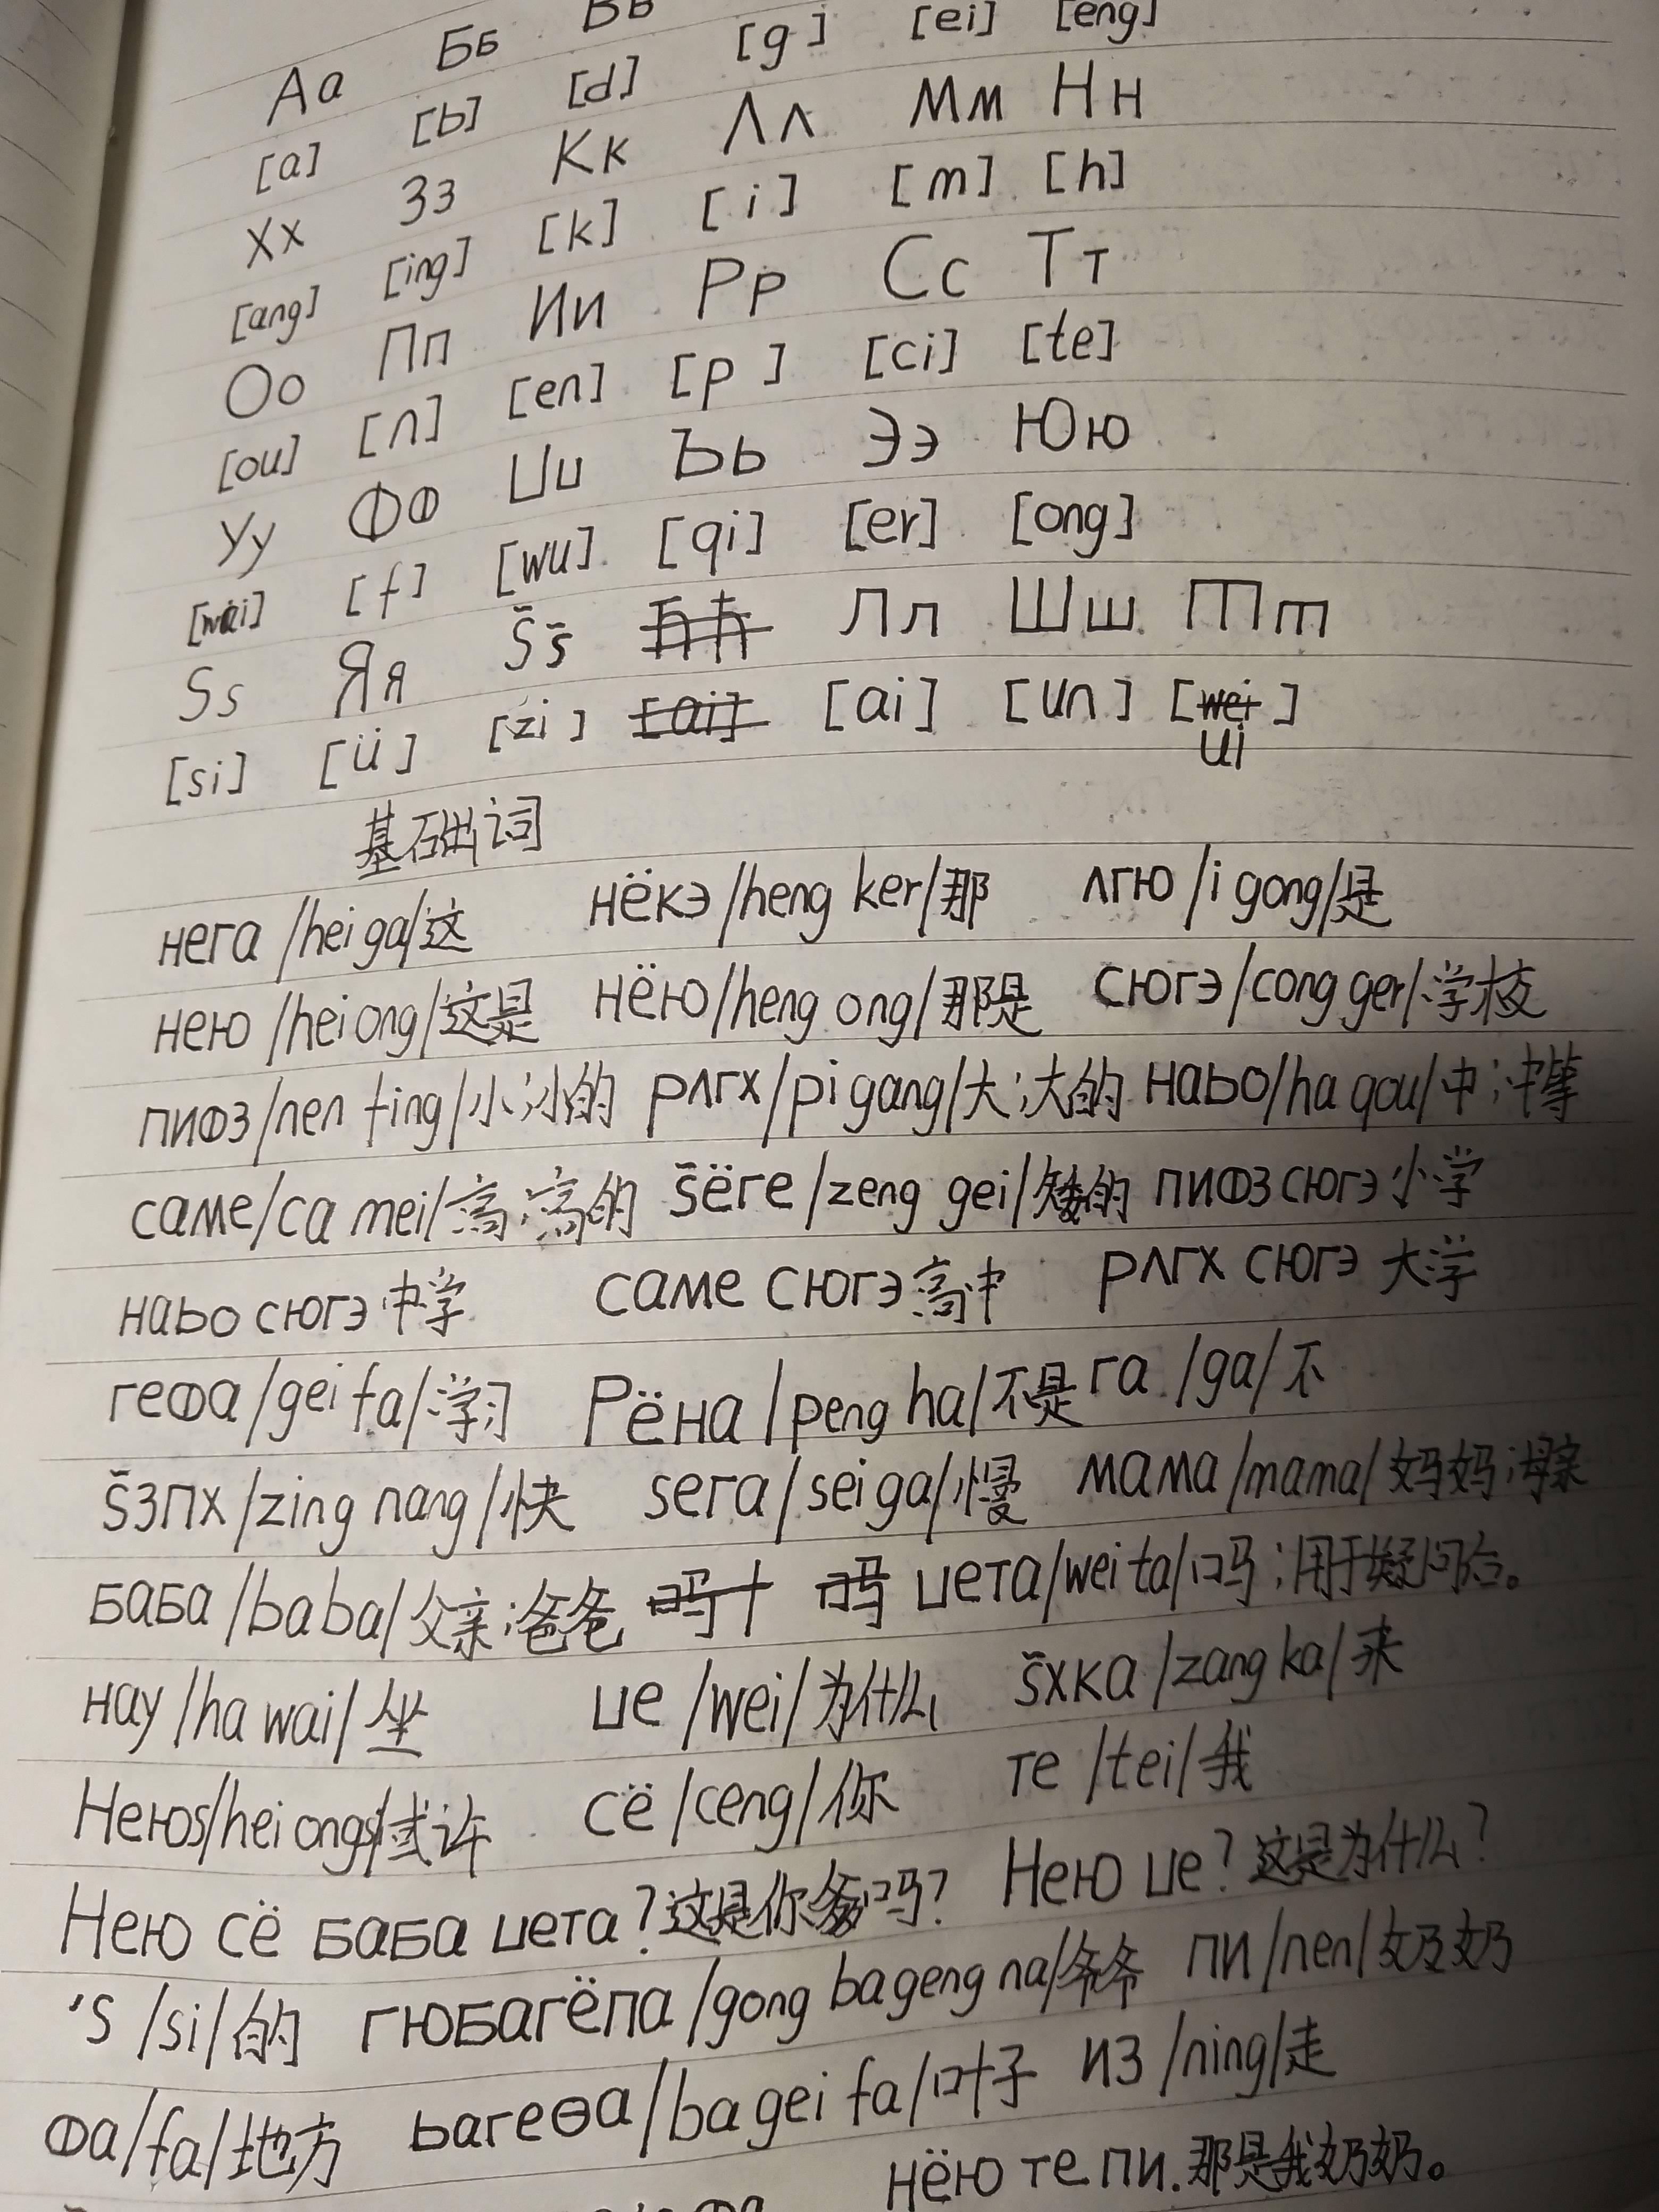 Аа Бб Вв
[a] [b] [d] [g] [ei] [eng]
Хх Зз Кк Λʌ Мм Нн
[ang] [ing] [k] [i] [m] [h]
Оо Пп Ии Рр Сс Тт
[ou] [n] [en] [p] [ci] [te]
Уу Фф Цц Ъь Ээ Юю
[wai] [f] [wu] [qi] [er] [ong]
Ss Яя S̄s̄ Лл Шш Тт
[si] [ü] [zi] [ai] [ai] [un] [wei]
ui
基础词
нега /hei ga/这 нёкэ /heng ker/那 ʌгю /i gong/是
нею /hei ong/这是 нёю /heng ong/那是 сюгэ /cong ger/学校
пифз /nen fing/小;小的 рʌгх /pi gang/大;大的 наьо /ha qou/中;中等
саме /ca mei/高;高的 s̄ёге /zeng gei/矮的 пифз сюгэ 小学
наьо сюгэ 中学 саме сюгэ 高中 рʌгх сюгэ 大学
гефа /gei fa/学习 Рёна /peng ha/不是 га /ga/不
s̄зпх /zing nang/快 sега /sei ga/慢 мама /mama/妈妈;母亲
баба /ba ba/父亲;爸爸 吗 吗 цета /wei ta/吗;用于疑问句。
нау /ha wai/坐 це /wei/为什么 s̄хка /zang ka/来
Неюs /hei ongs/或许 сё /ceng/你 те /tei/我
Нею сё баба цета?这是你爸吗? Нею це?这是为什么?
's /si/的 гюбагёпа /gong ba geng na/爷爷 пи /nen/奶奶
фа /fa/地方 ьагеѳа /ba gei fa/叶子 из /ning/走
нёю те пи.那是我奶奶。